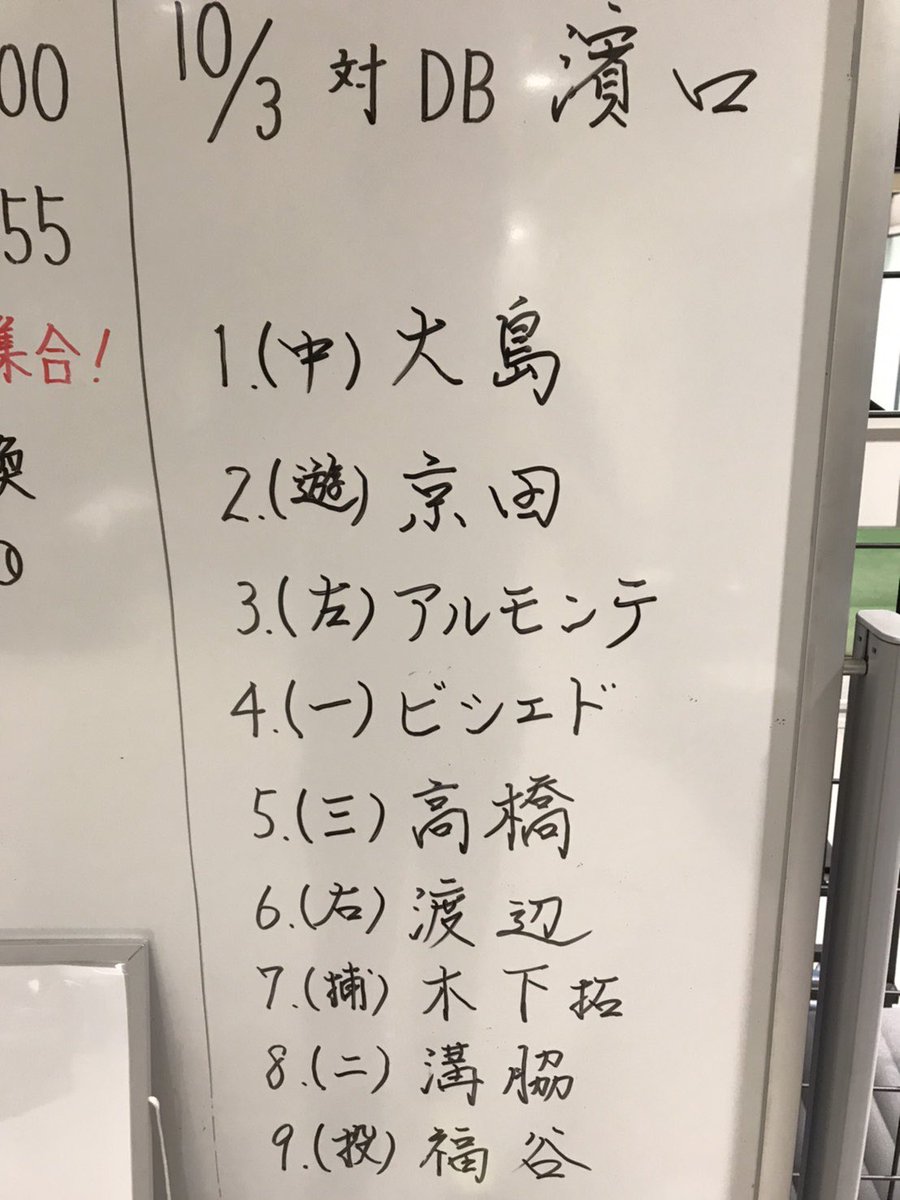 00
55
集合!
換
10/3 対 DB 濱口
1.(中)大島
2.(遊)京田
3.(左)アルモンテ
4.(一)ビシエド
5.(三)高橋
6.(右)渡辺
7.(捕)木下拓
8.(二)溝脇
9.(投)福谷